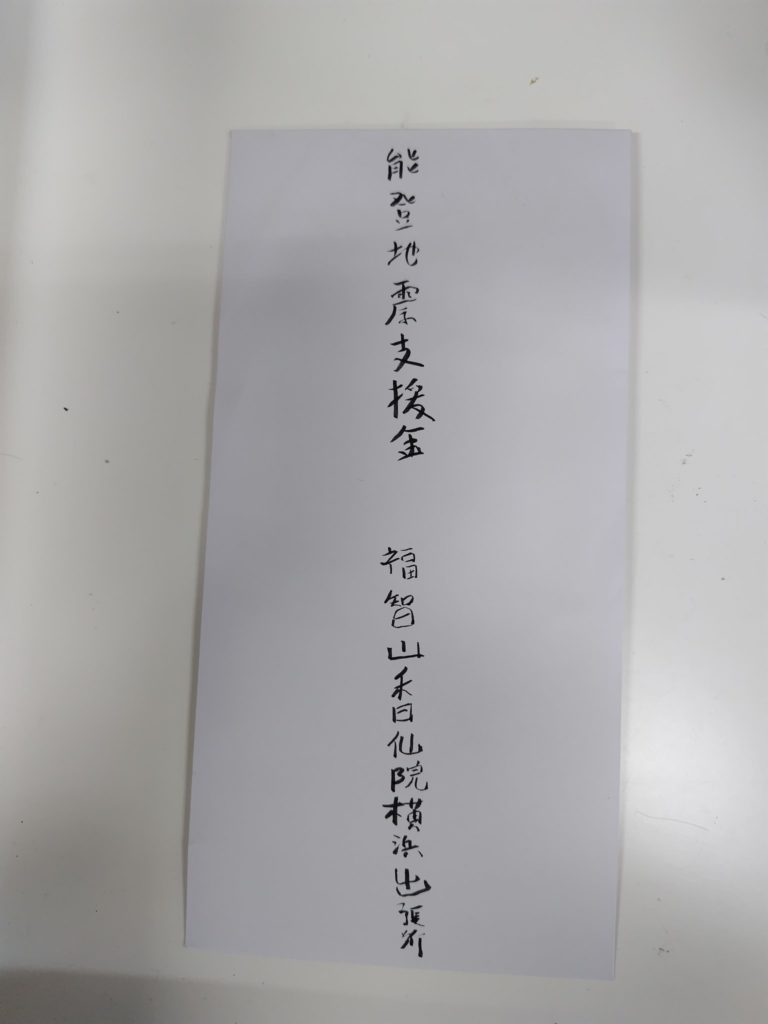 能登地震支援金
福智山香仙院横浜出張所